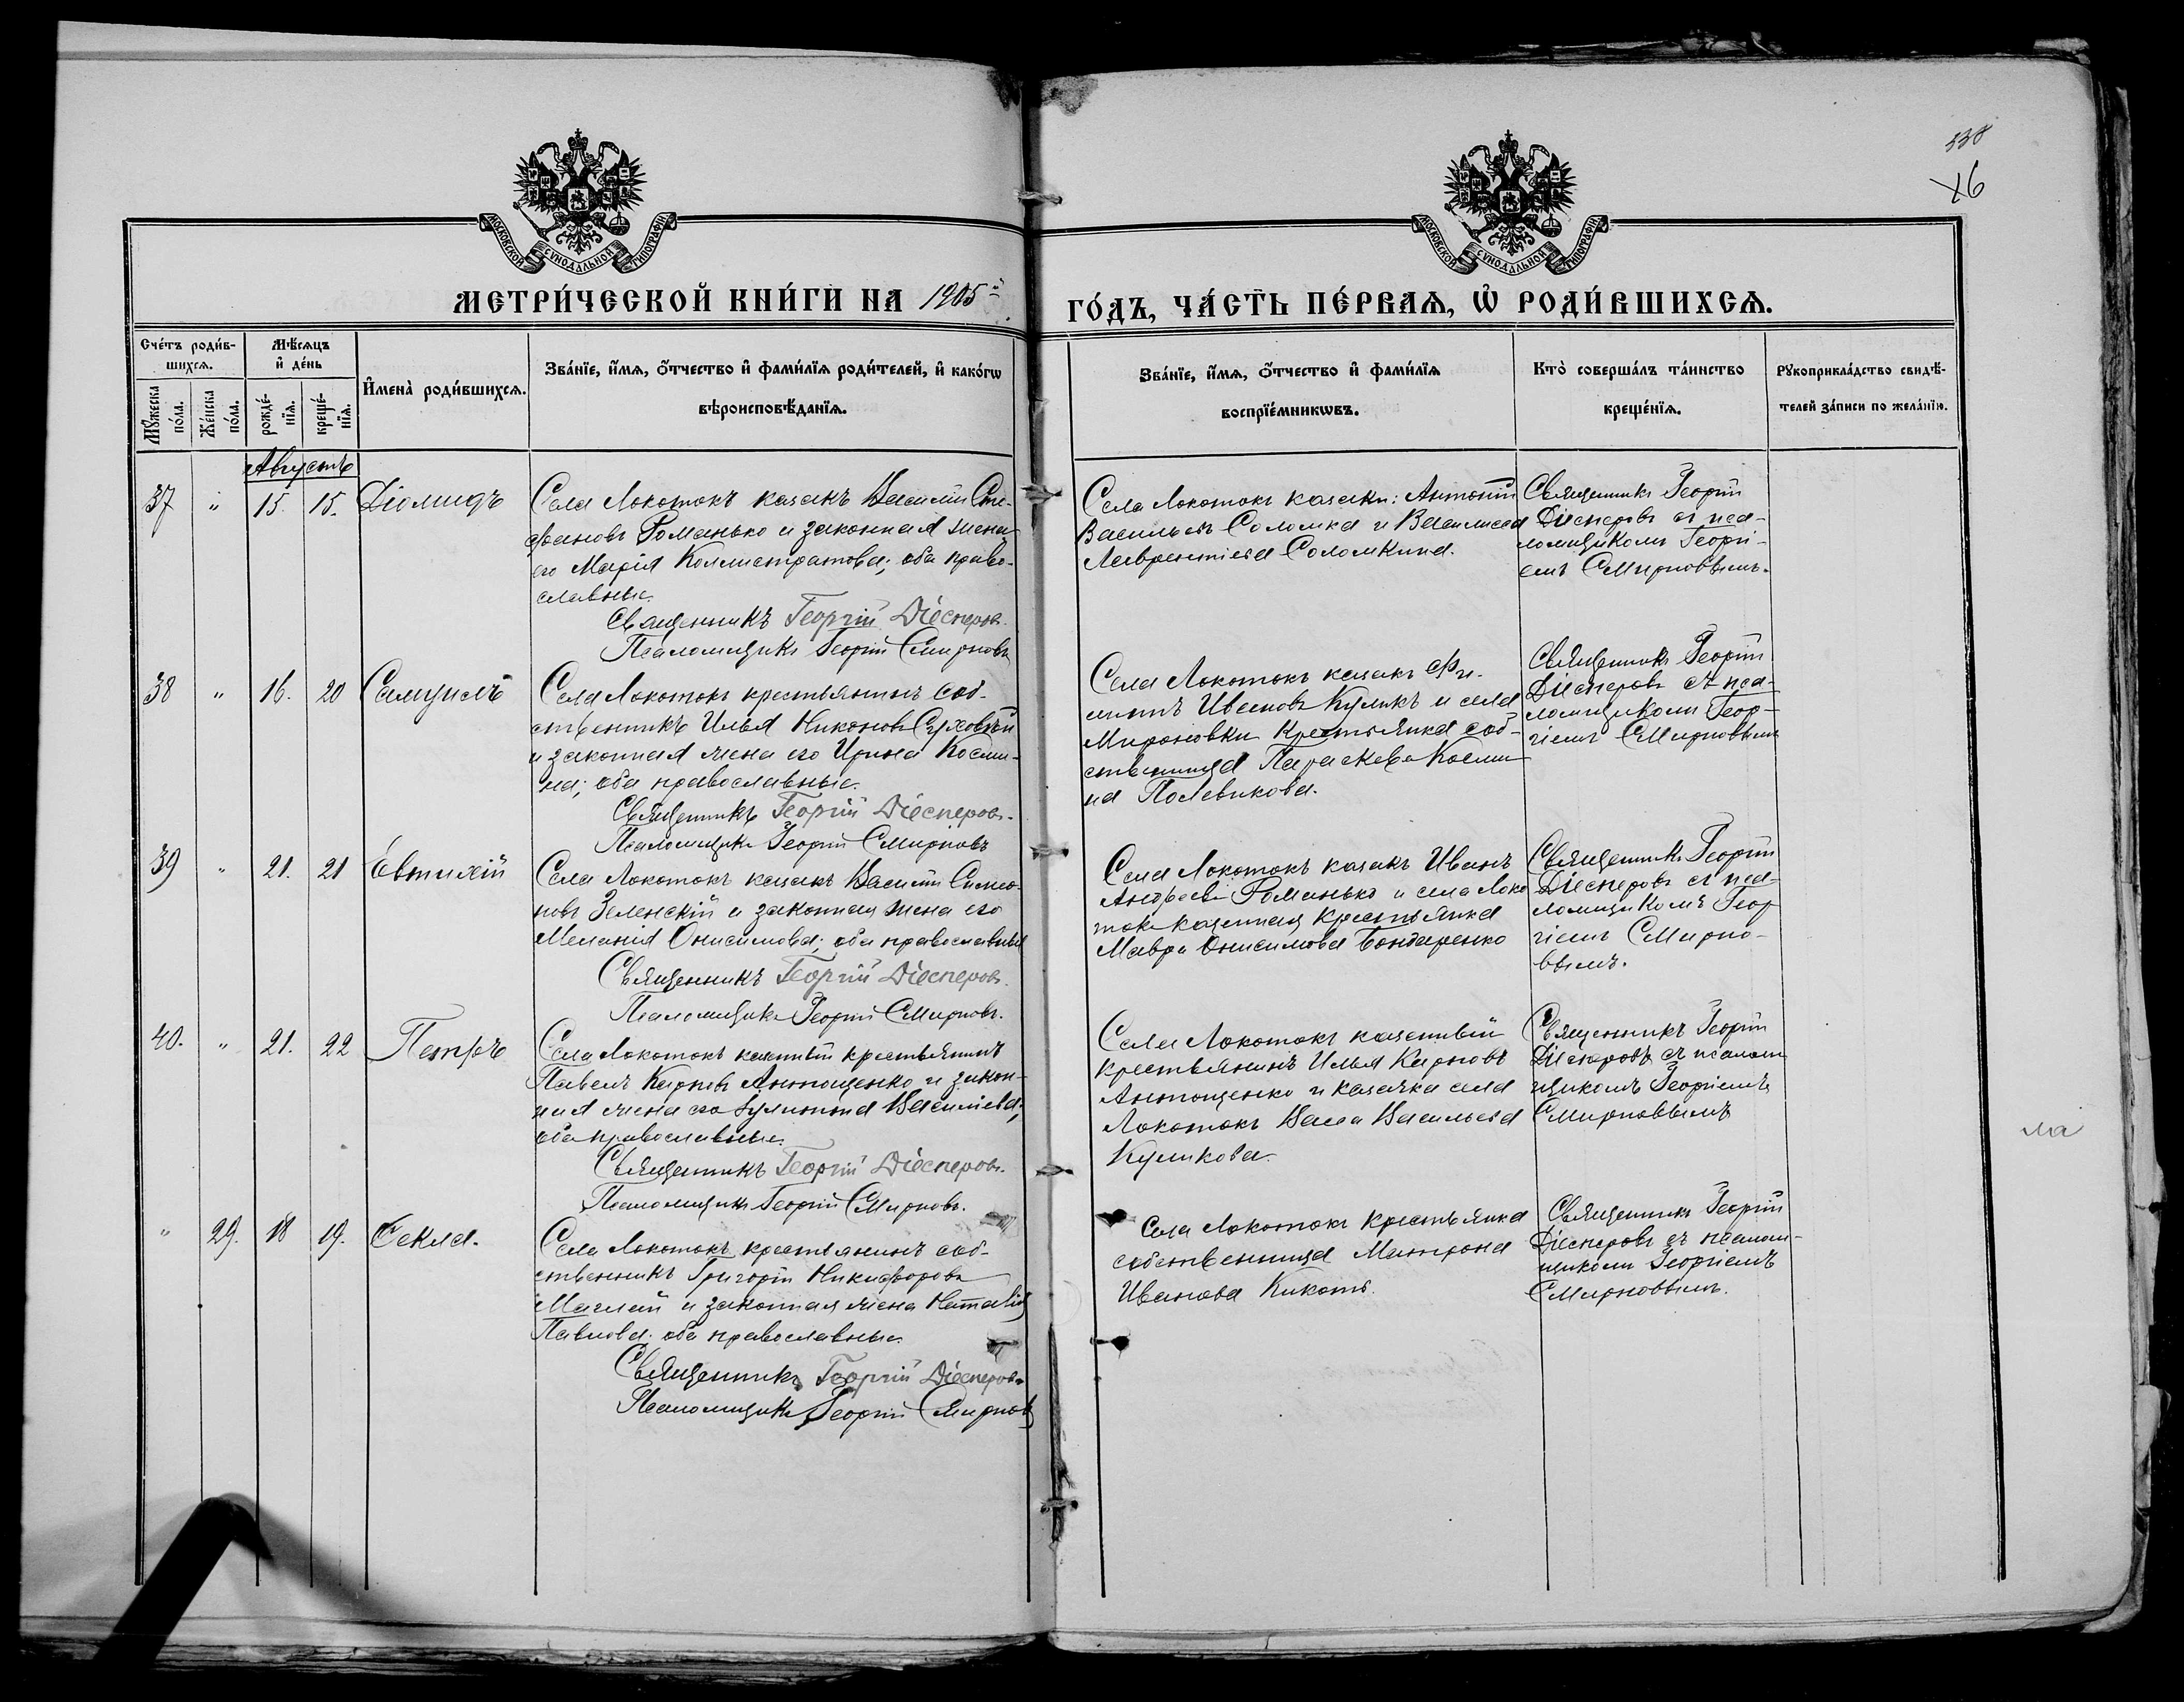 338
46
МОСКОВСКОЙ СѴНОДАЛЬНОЙ ТИПОГРАФІИ
МОСКОВСКОЙ СѴНОДАЛЬНОЙ ТИПОГРАФІИ
МЕТРИ́ЧЕСКОЙ КНИ́ГИ НА 1905й
ГО́ДЪ, ЧА́СТЬ ПЕ́РВАѦ, Ѽ РОДИ́ВШИХСѦ.
Сче́тъ роди́в-
шихсѧ.
Мѣ́сѧцъ
и҆ де́нь
Мꙋ́жеска
по́ла.
Же́нска
по́ла.
рожде́-
нїѧ.
креще́-
нїѧ.
И҆мена̀ роди́вшихсѧ.
Зва́нїе, и҆́мѧ, ѻ҆́тчество и҆ фами́лїѧ роди́телей, и҆ како́гѡ
вѣроисповѣ́данїѧ.
Зва́нїе, и҆́мѧ, ѻ҆́тчество и҆ фами́лїѧ
воспрїе́мникѡвъ.
Кто̀ соверша́лъ та́инство
креще́нїѧ.
Рꙋкоприкла́дство свидѣ́-
телей за́писи по жела́нїю.
Августъ
37 " 15. 15. Діомидъ
Села Локотокъ казакъ Василій Сте-
фановъ Романько и законная жена
его Марія Каллистратова; оба право-
славные.
Священникъ Георгій Діесперовъ.
Псаломщикъ Георгій Смирновъ
Села Локотокъ казаки: Антоній
Васильевъ Соломка и Василиса
Лаврентіева Соломкина.
Священникъ Георгій
Діесперовъ съ пса-
ломщикомъ Георгі-
емъ Смирновымъ.
38 " 16. 20 Самуилъ
Села Локотокъ крестьянинъ соб-
ственникъ Илья Никоновъ Суховѣй
и законная жена его Ирина Косми-
на; оба православные.
Священникъ Георгій Діесперовъ.
Псаломщикъ Георгій Смирновъ
Села Локотокъ казакъ Фи-
липпъ Ивановъ Куликъ и села
Мироновки крестьянка соб-
ственница Параскева Косми
на Полевикова.
Священникъ Георгій
Діесперовъ съ пса-
ломщикомъ Геор-
гіемъ Смирновымъ
39 " 21. 21 Евтихій
Села Локотокъ казакъ Василій Симео-
новъ Зеленскій и законная жена его
Меланія Онисимова; оба православные
Священникъ Георгій Діесперовъ.
Псаломщикъ Георгій Смирновъ.
Села Локотокъ казакъ Иванъ
Андреевъ Романько и села Локо
токъ казенная крестьянка
Мавра Онисимова Бондаренко
Священникъ Георгій
Діесперовъ съ пса-
ломщикомъ Геор
гіемъ Смирно-
вымъ.
40. " 21. 22 Петръ
Села Локотокъ казенный крестьянинъ
Павелъ Карповъ Антощенко и закон-
ная жена его Іуліанна Василіева;
оба православные.
Священникъ Георгій Діесперовъ.
Псаломщикъ Георгій Смирновъ.
Села Локотокъ казенный
крестьянинъ Илья Карповъ
Антощенко и казачка села
Локотокъ Васса Васильева
Куликова.
Священникъ Георгій
Діесперовъ съ псалом
щикомъ Георгіемъ
Смирновымъ
" 29. 18 19. Ѳекла.
Села Локотокъ крестьянинъ соб-
ственникъ Григорій Никифоровъ
и законная жена Наталія
Павлова; оба православные.
Священникъ Георгій Діесперовъ
Псаломщикъ Георгій Смирновъ
Села Локотокъ крестьянка
собственница Матрона
Иванова Кикоть.
Священникъ Георгій
Діесперовъ съ псалом-
щикомъ Георгіемъ
Смирновымъ.
ла